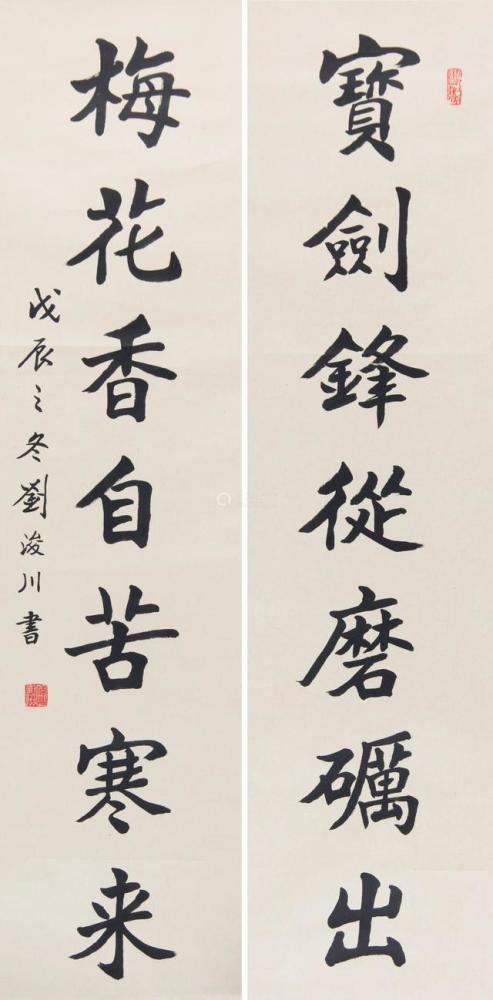 寶劍鋒從磨礪出
梅花香自苦寒来
戊辰之冬劉浚川書